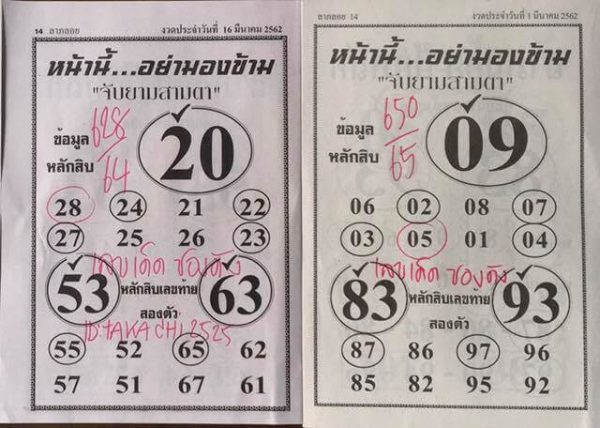 14 ลาภลอย งวดประจำวันที่ 16 มีนาคม 2562
หน้านี้...อย่ามองข้าม
"จับยามสามตา"
ข้อมูล 628
หลักสิบ 64
20
28 24 21 22
27 25 26 23
เลขเด็ด ซองดัง
53 หลักสิบเลขท้าย 63
สองตัว
ID:TAKACHI2525
55 52 65 62
57 51 67 61
ลาภลอย 14 งวดประจำวันที่ 1 มีนาคม 2562
หน้านี้...อย่ามองข้าม
"จับยามสามตา"
ข้อมูล 650
หลักสิบ 65
09
06 02 08 07
03 05 01 04
เลขเด็ด ซองดัง
83 หลักสิบเลขท้าย 93
สองตัว
87 86 97 96
85 82 95 92